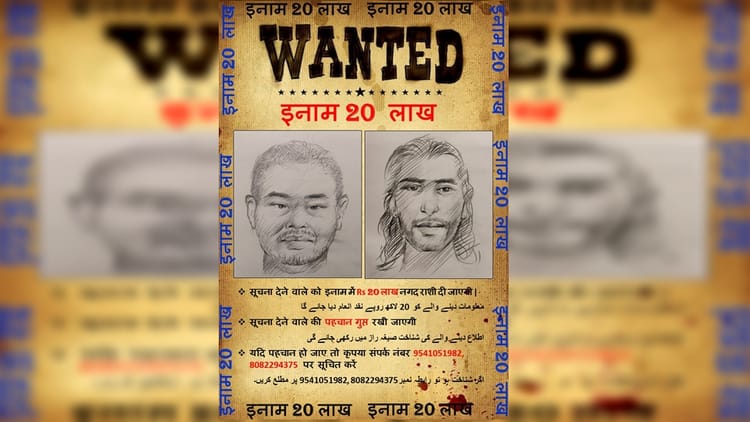 इनाम 20 लाख इनाम 20 लाख
WANTED
इनाम 20 लाख
इनाम 20 लाख
इनाम 20 लाख
इनाम 20 लाख
इनाम 20 लाख
इनाम 20 लाख
इनाम 20 लाख
इनाम 20 लाख
इनाम 20 लाख
❖ सूचना देने वाले को इनाम में Rs 20 लाख नगद राशी दी जाएगी।
معلومات دینے والے کو 20 لاکھ روپے نقد انعام دیا جائے گا
❖ सूचना देने वाले की पहचान गुप्त रखी जाएगी
اطلاع دینے والے کی شناخت صیغہ راز میں رکھی جائے گی
❖ यदि पहचान हो जाए तो कृपया संपर्क नंबर 9541051982,
8082294375 पर सूचित करें
اگر شناخت ہو تو رابطہ نمبر 9541051982, 8082294375 پر مطلع کریں۔
इनाम 20 लाख इनाम 20 लाख